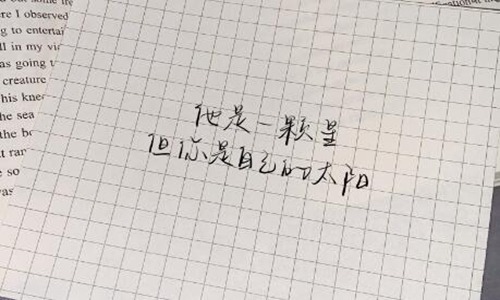 ere I observed
g to entertai
ll in my vi
as going t
creature
his kne
he sea
the br
t rar
so
was
他是一颗星
但你是自己的太阳